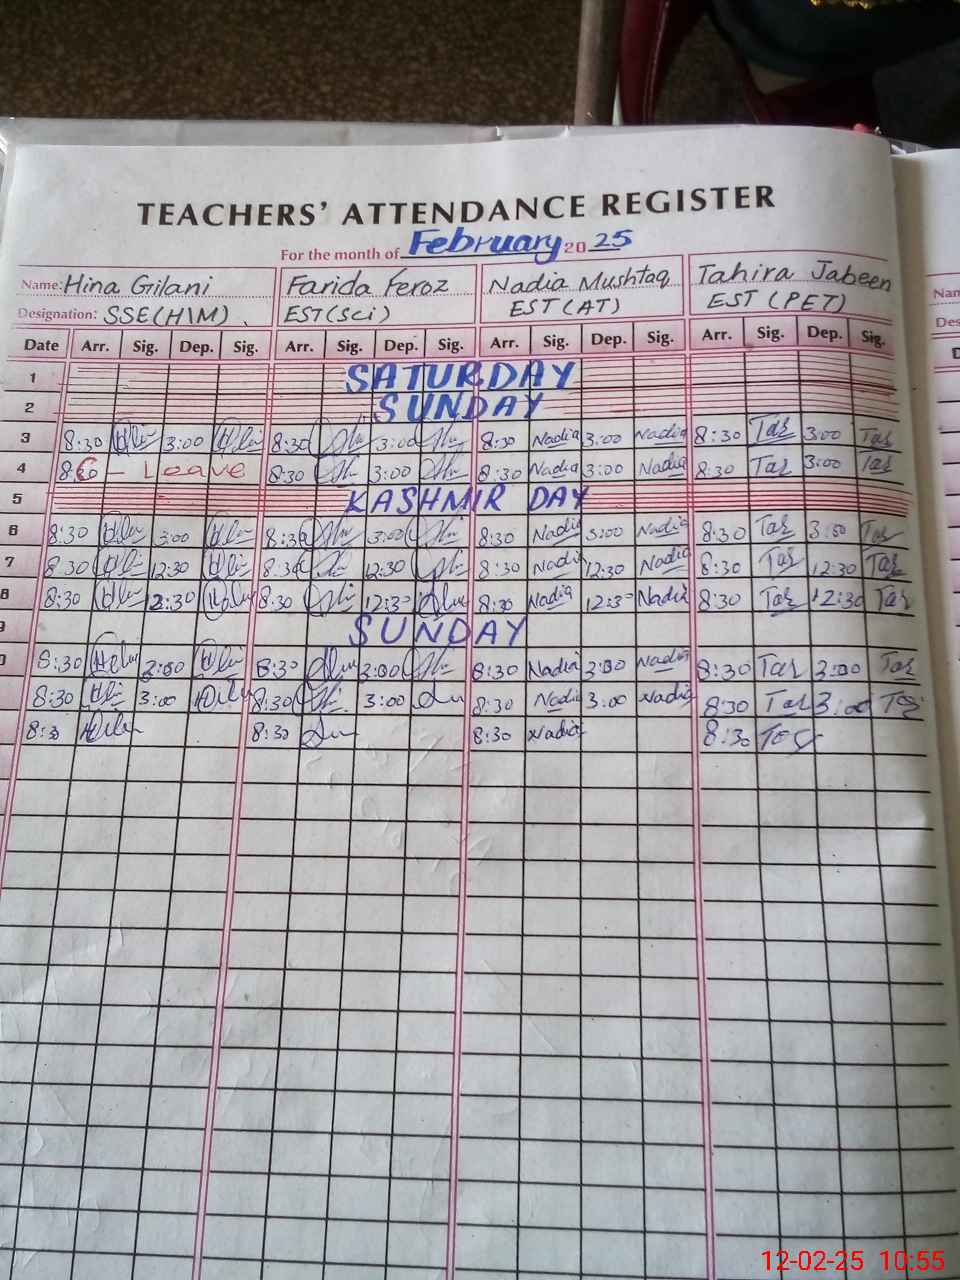 TEACHERS' ATTENDANCE REGISTER
For the month of February 2025
Name: Hina Gilani Farida Feroz Nadia Mushtaq Tahira Jabeen
Designation: SSE(H\M) EST(Sci) EST(AT) EST(PET)
Date Arr. Sig. Dep. Sig. Arr. Sig. Dep. Sig. Arr. Sig. Dep. Sig. Arr. Sig. Dep. Sig.
1 SATURDAY
2 SUNDAY
3 8:30 3:00 8:30 3:00 8:30 Nadia 3:00 Nadia 8:30 Tas 3:00 Tas
4 Leave 8:30 3:00 8:30 Nadia 3:00 Nadia 8:30 Tas 3:00 Tas
5 KASHMIR DAY
6 8:30 3:00 8:30 3:00 8:30 Nadia 3:00 Nadia 8:30 Tas 3:00 Tas
7 8:30 12:30 8:30 12:30 8:30 Nadia 12:30 Nadia 8:30 Tas 12:30 Tas
8 8:30 12:30 8:30 12:30 8:30 Nadia 12:30 Nadia 8:30 Tas 12:30 Tas
9 SUNDAY
8:30 3:00 8:30 3:00 8:30 Nadia 3:00 Nadia 8:30 Tas 3:00 Tas
8:30 3:00 8:30 3:00 8:30 Nadia 3:00 Nadia 8:30 Tas 3:00 Tas
8:30 8:30 8:30 Nadia 8:30 Tas
12-02-25 10:55